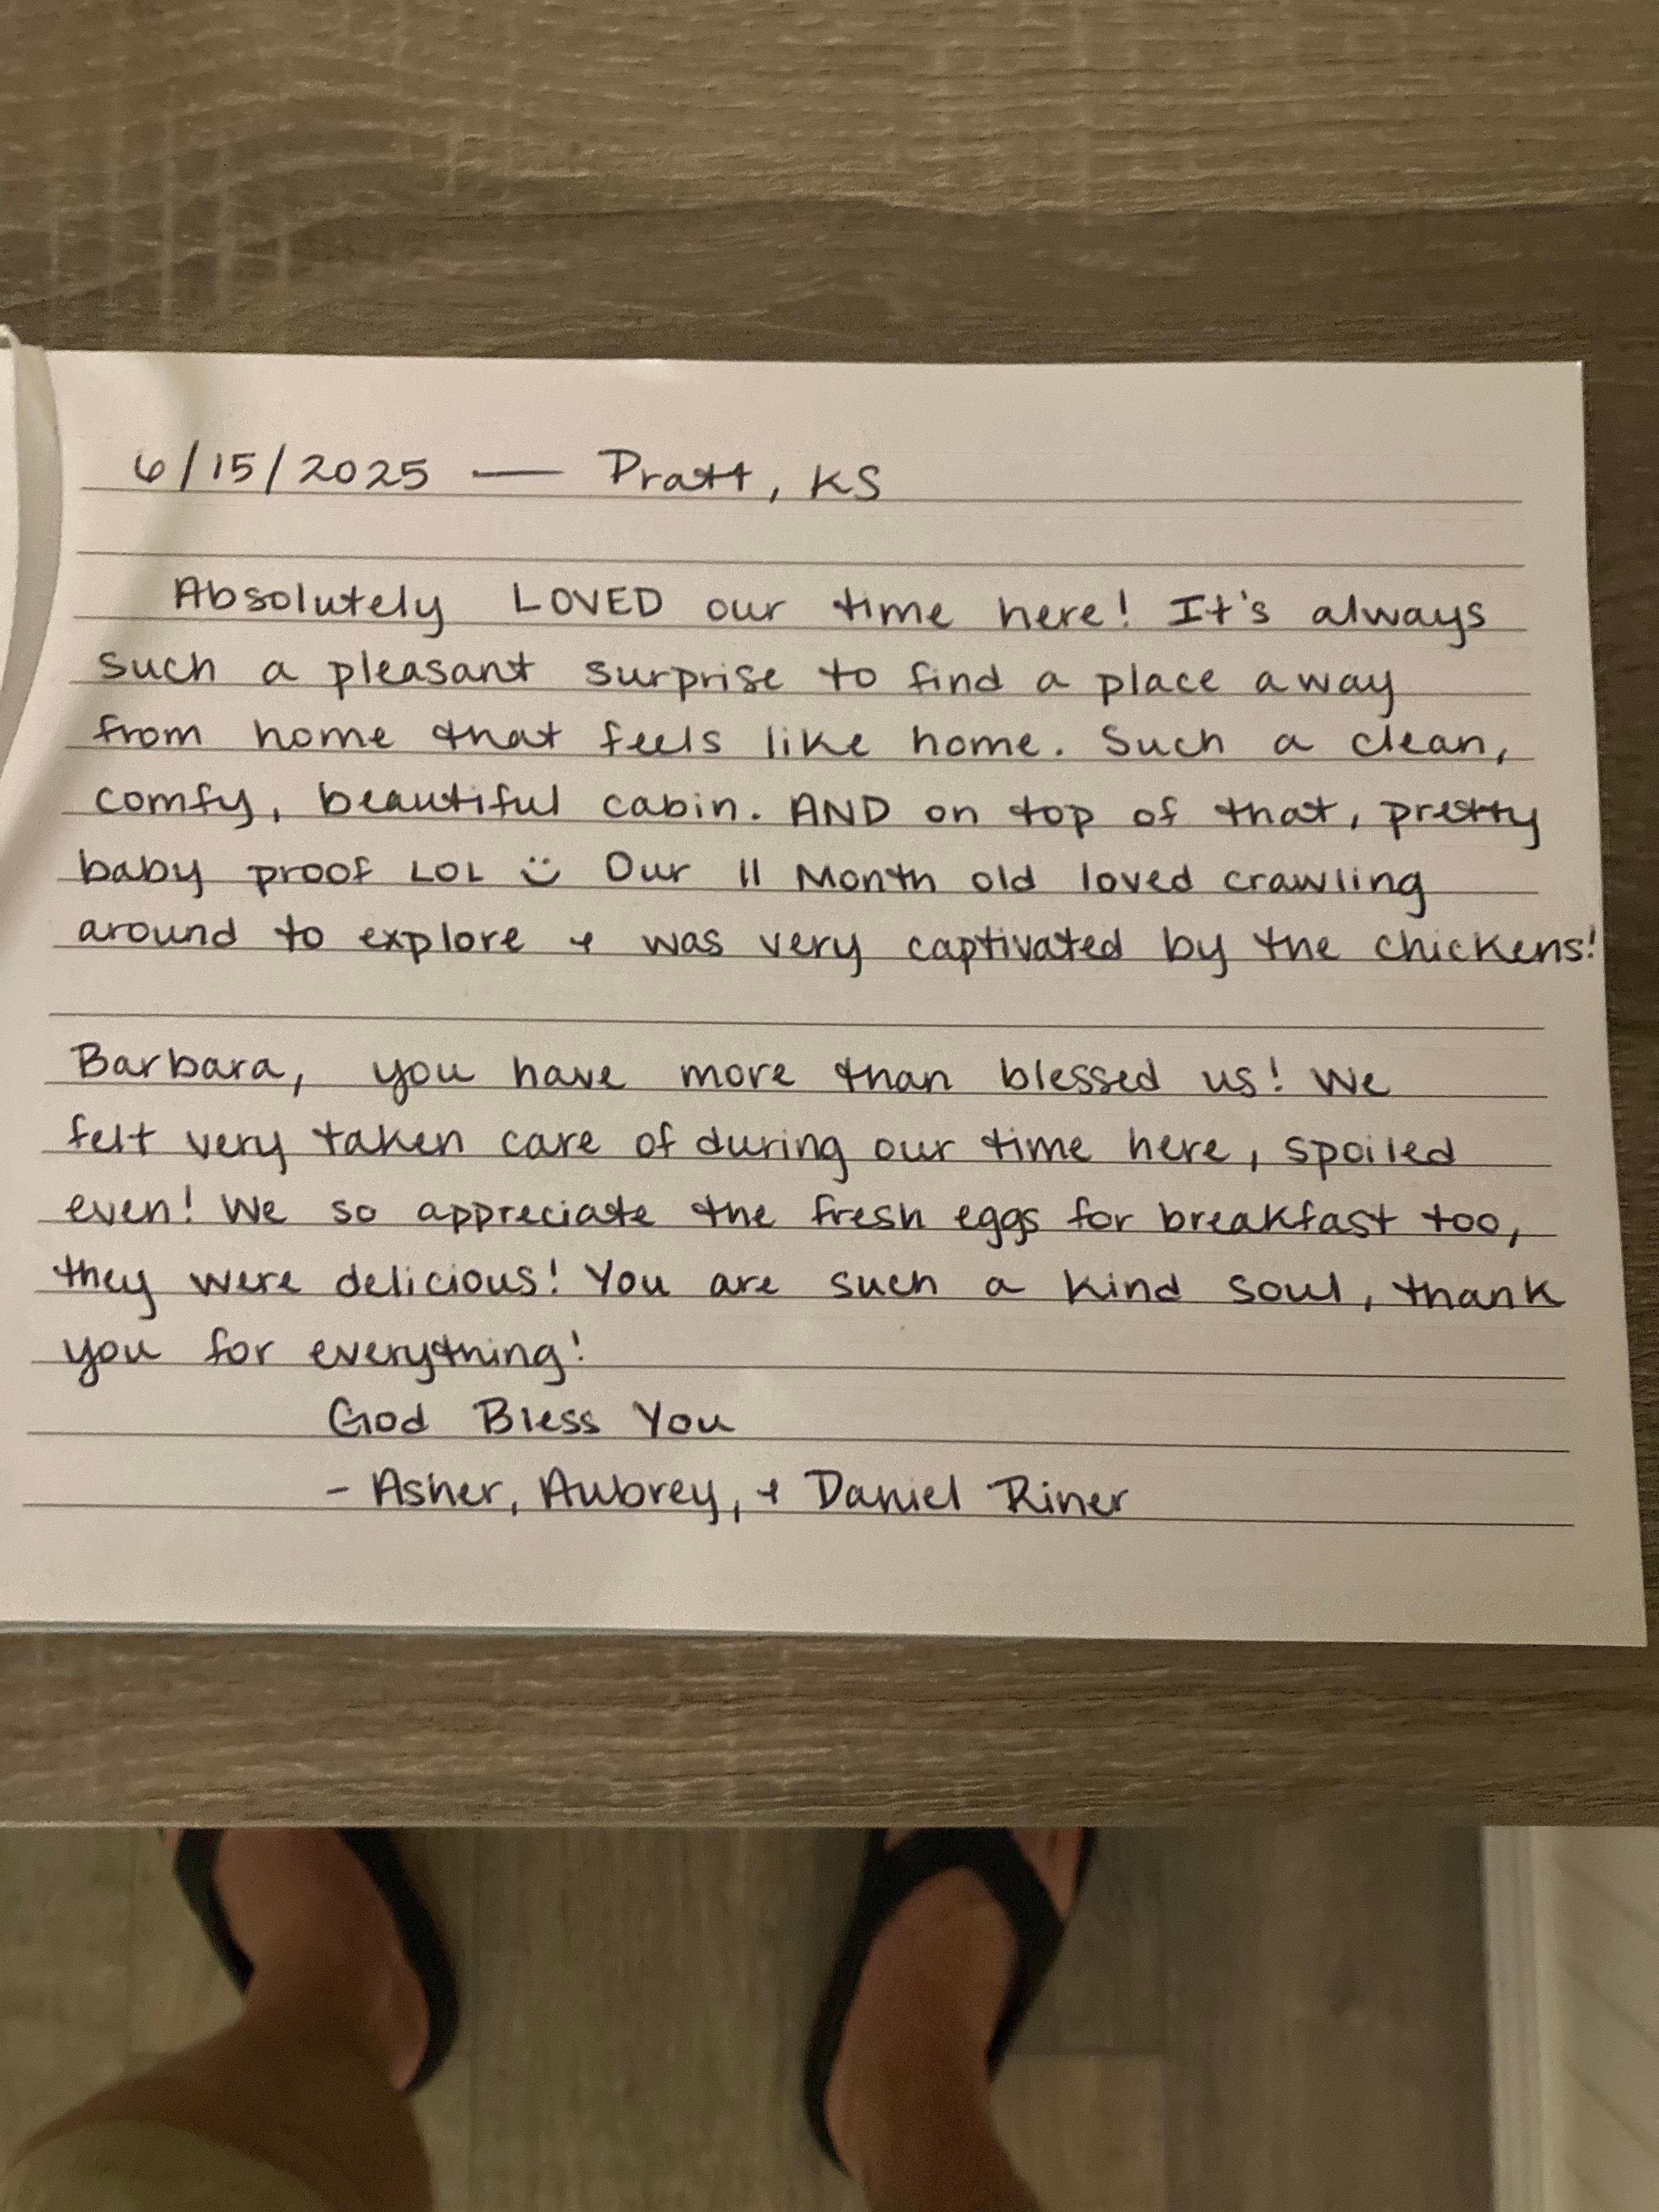 6/15/2025 — Pratt, KS
Absolutely LOVED our time here! It's always
such a pleasant surprise to find a place away
from home that feels like home. Such a clean,
comfy, beautiful cabin. AND on top of that, pretty
baby proof LOL :) Our 11 Month old loved crawling
around to explore + was very captivated by the chickens!
Barbara, you have more than blessed us! We
felt very taken care of during our time here, spoiled
even! We so appreciate the fresh eggs for breakfast too,
they were delicious! You are such a kind soul, thank
you for everything!
God Bless You
- Asher, Aubrey, + Daniel Riner